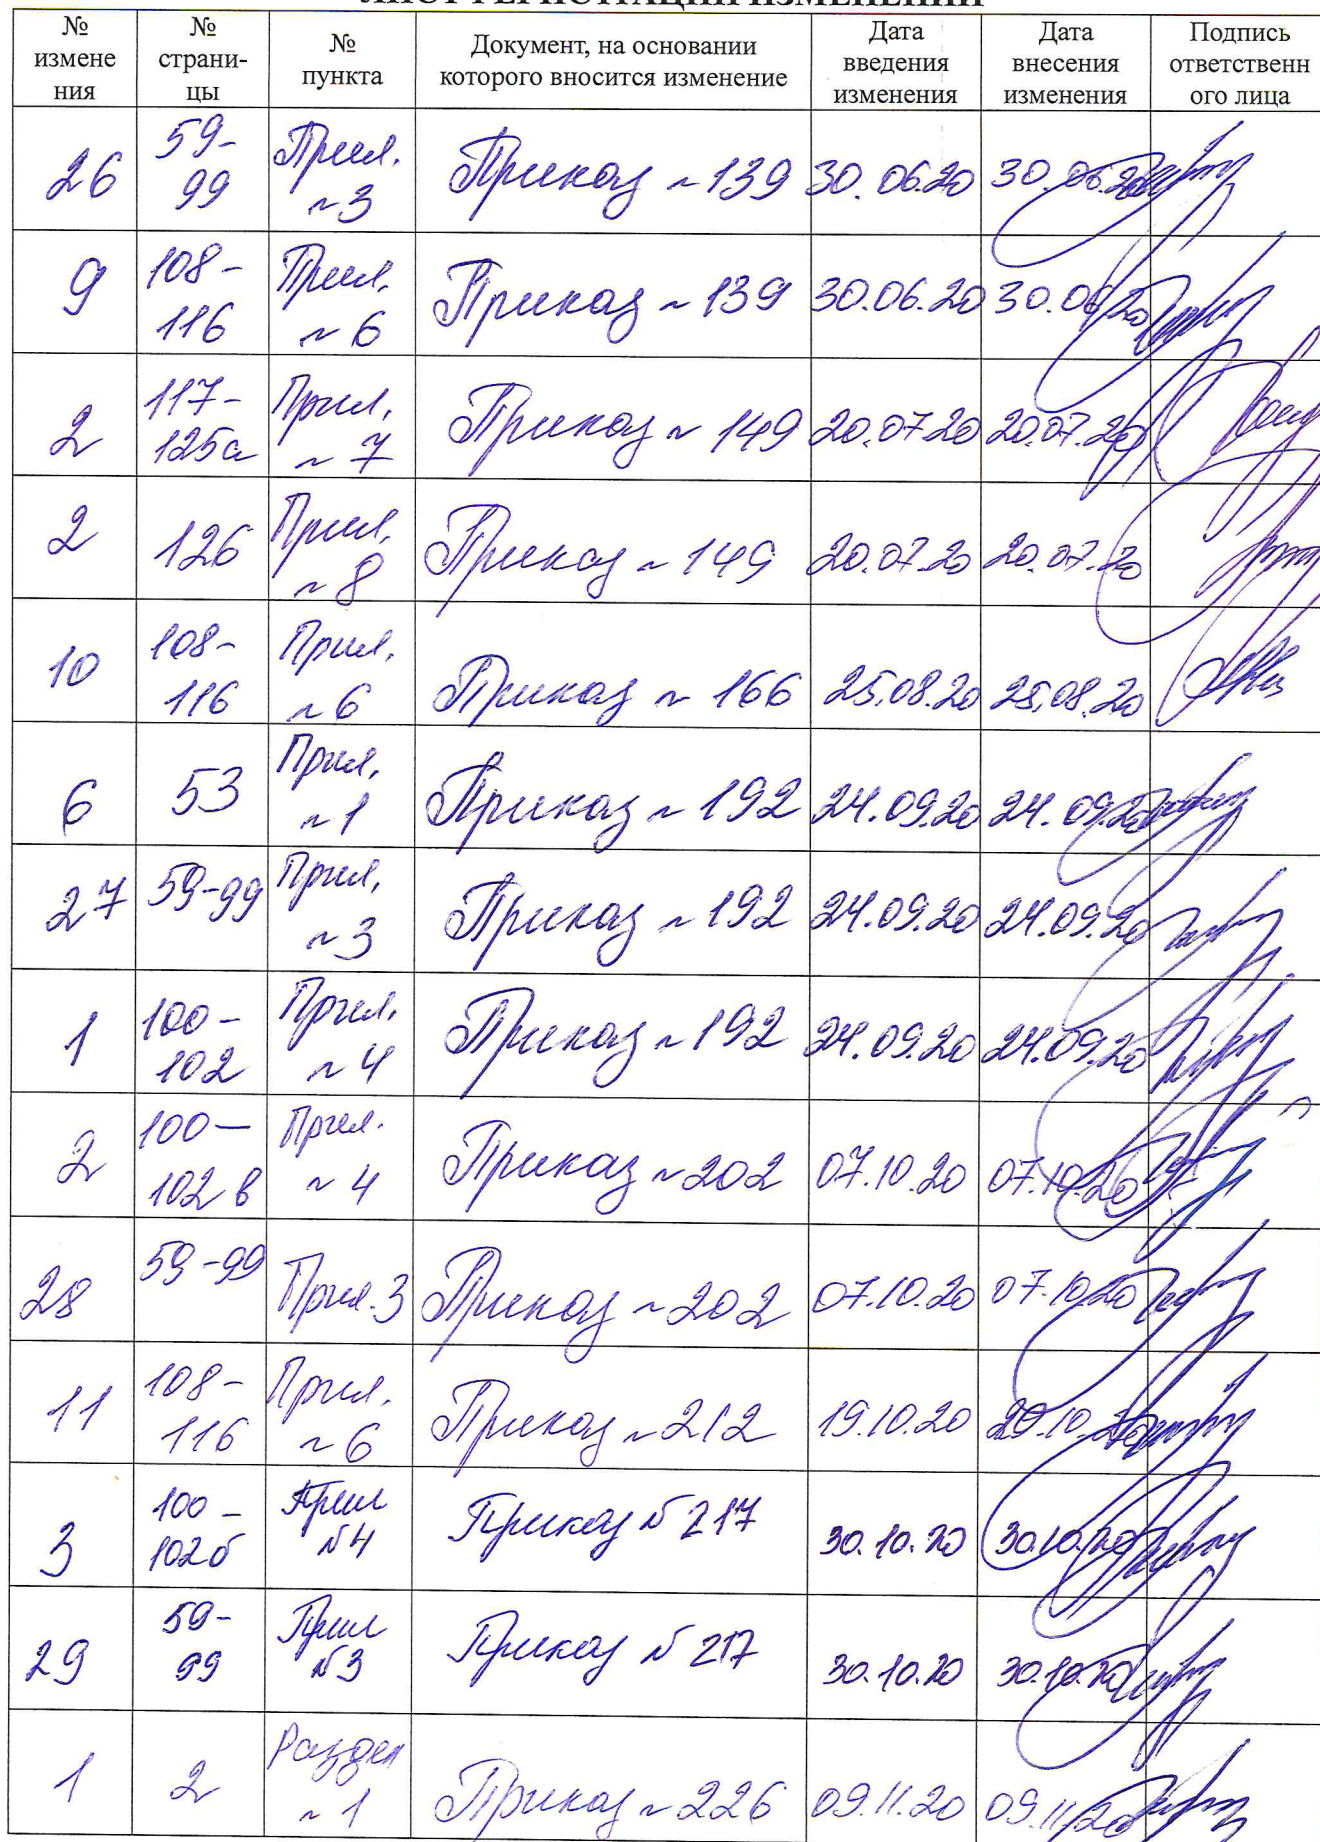 ЛИСТ РЕГИСТРАЦИИ ИЗМЕНЕНИЙ
№ измене ния | № страни- цы | № пункта | Документ, на основании которого вносится изменение | Дата введения изменения | Дата внесения изменения | Подпись ответственн ого лица
26 | 59-99 | Прил. ~3 | Приказ ~ 139 | 30.06.20 | 30.06.20
9 | 108-116 | Прил. ~ 6 | Приказ ~ 139 | 30.06.20 | 30.06.20
2 | 117-125а | Прил. ~ 7 | Приказ ~ 149 | 20.07.20 | 20.07.20
2 | 126 | Прил. ~ 8 | Приказ ~ 149 | 20.07.20 | 20.07.20
10 | 108-116 | Прил. ~ 6 | Приказ ~ 166 | 25.08.20 | 25.08.20
6 | 53 | Прил. ~ 1 | Приказ ~ 192 | 24.09.20 | 24.09.20
27 | 59-99 | Прил. ~ 3 | Приказ ~ 192 | 24.09.20 | 24.09.20
1 | 100-102 | Прил. ~ 4 | Приказ ~ 192 | 24.09.20 | 24.09.20
2 | 100-102 в | Прил. ~ 4 | Приказ ~ 202 | 07.10.20 | 07.10.20
28 | 59-99 | Прил. 3 | Приказ ~ 202 | 07.10.20 | 07.10.20
11 | 108-116 | Прил. ~ 6 | Приказ ~ 212 | 19.10.20 | 29.10.20
3 | 100-102б | Прил №4 | Приказ № 217 | 30.10.20 | 30.10.20
29 | 59-99 | Прил №3 | Приказ № 217 | 30.10.20 | 30.10.20
1 | 2 | Раздел ~ 1 | Приказ ~ 226 | 09.11.20 | 09.11.20